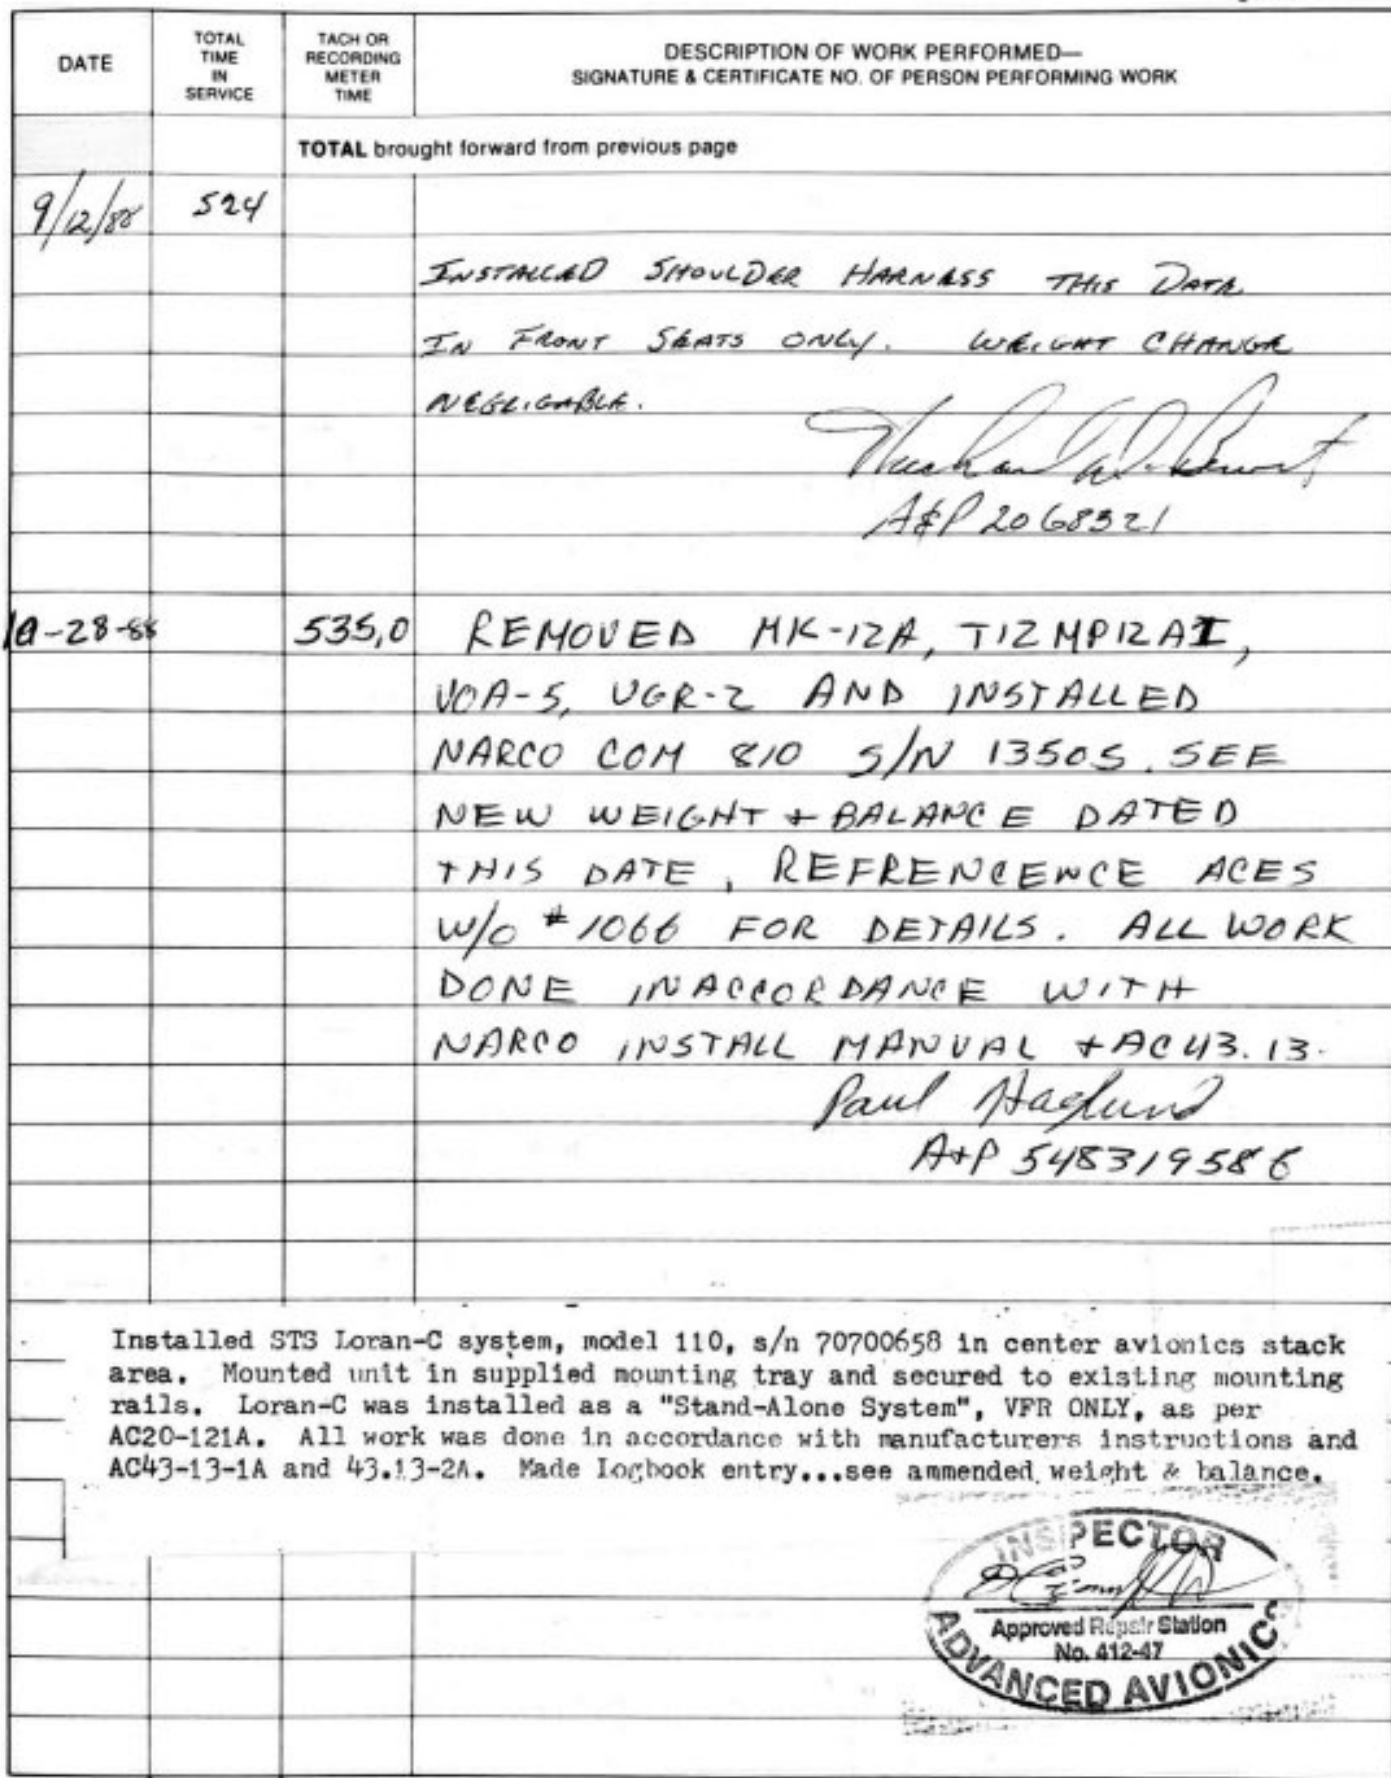 DATE
TOTAL
TIME
IN
SERVICE
TACH OR
RECORDING
METER
TIME
DESCRIPTION OF WORK PERFORMED—
SIGNATURE & CERTIFICATE NO. OF PERSON PERFORMING WORK
TOTAL brought forward from previous page
9/12/88 524
INSTALLED SHOULDER HARNESS THIS DATE
IN FRONT SEATS ONLY. WEIGHT CHANGE
NEGLIGABLE.
A&P 2068321
10-28-88 535,0 REMOVED MK-12A, T12MP12AI,
VOA-5, UGR-2 AND INSTALLED
NARCO COM 810 S/N 13505. SEE
NEW WEIGHT + BALANCE DATED
THIS DATE, REFRENCENCE ACES
W/O #1066 FOR DETAILS. ALL WORK
DONE INACCORDANCE WITH
NARCO INSTALL MANUAL + AC43.13.
Paul Haglund
A+P 548319586
Installed STS Loran-C system, model 110, s/n 70700658 in center avionics stack
area. Mounted unit in supplied mounting tray and secured to existing mounting
rails. Loran-C was installed as a "Stand-Alone System", VFR ONLY, as per
AC20-121A. All work was done in accordance with manufacturers instructions and
AC43-13-1A and 43.13-2A. Made Logbook entry...see ammended weight & balance.
INSPECTOR
Approved Repair Station
No. 412-47
ADVANCED AVIONICS